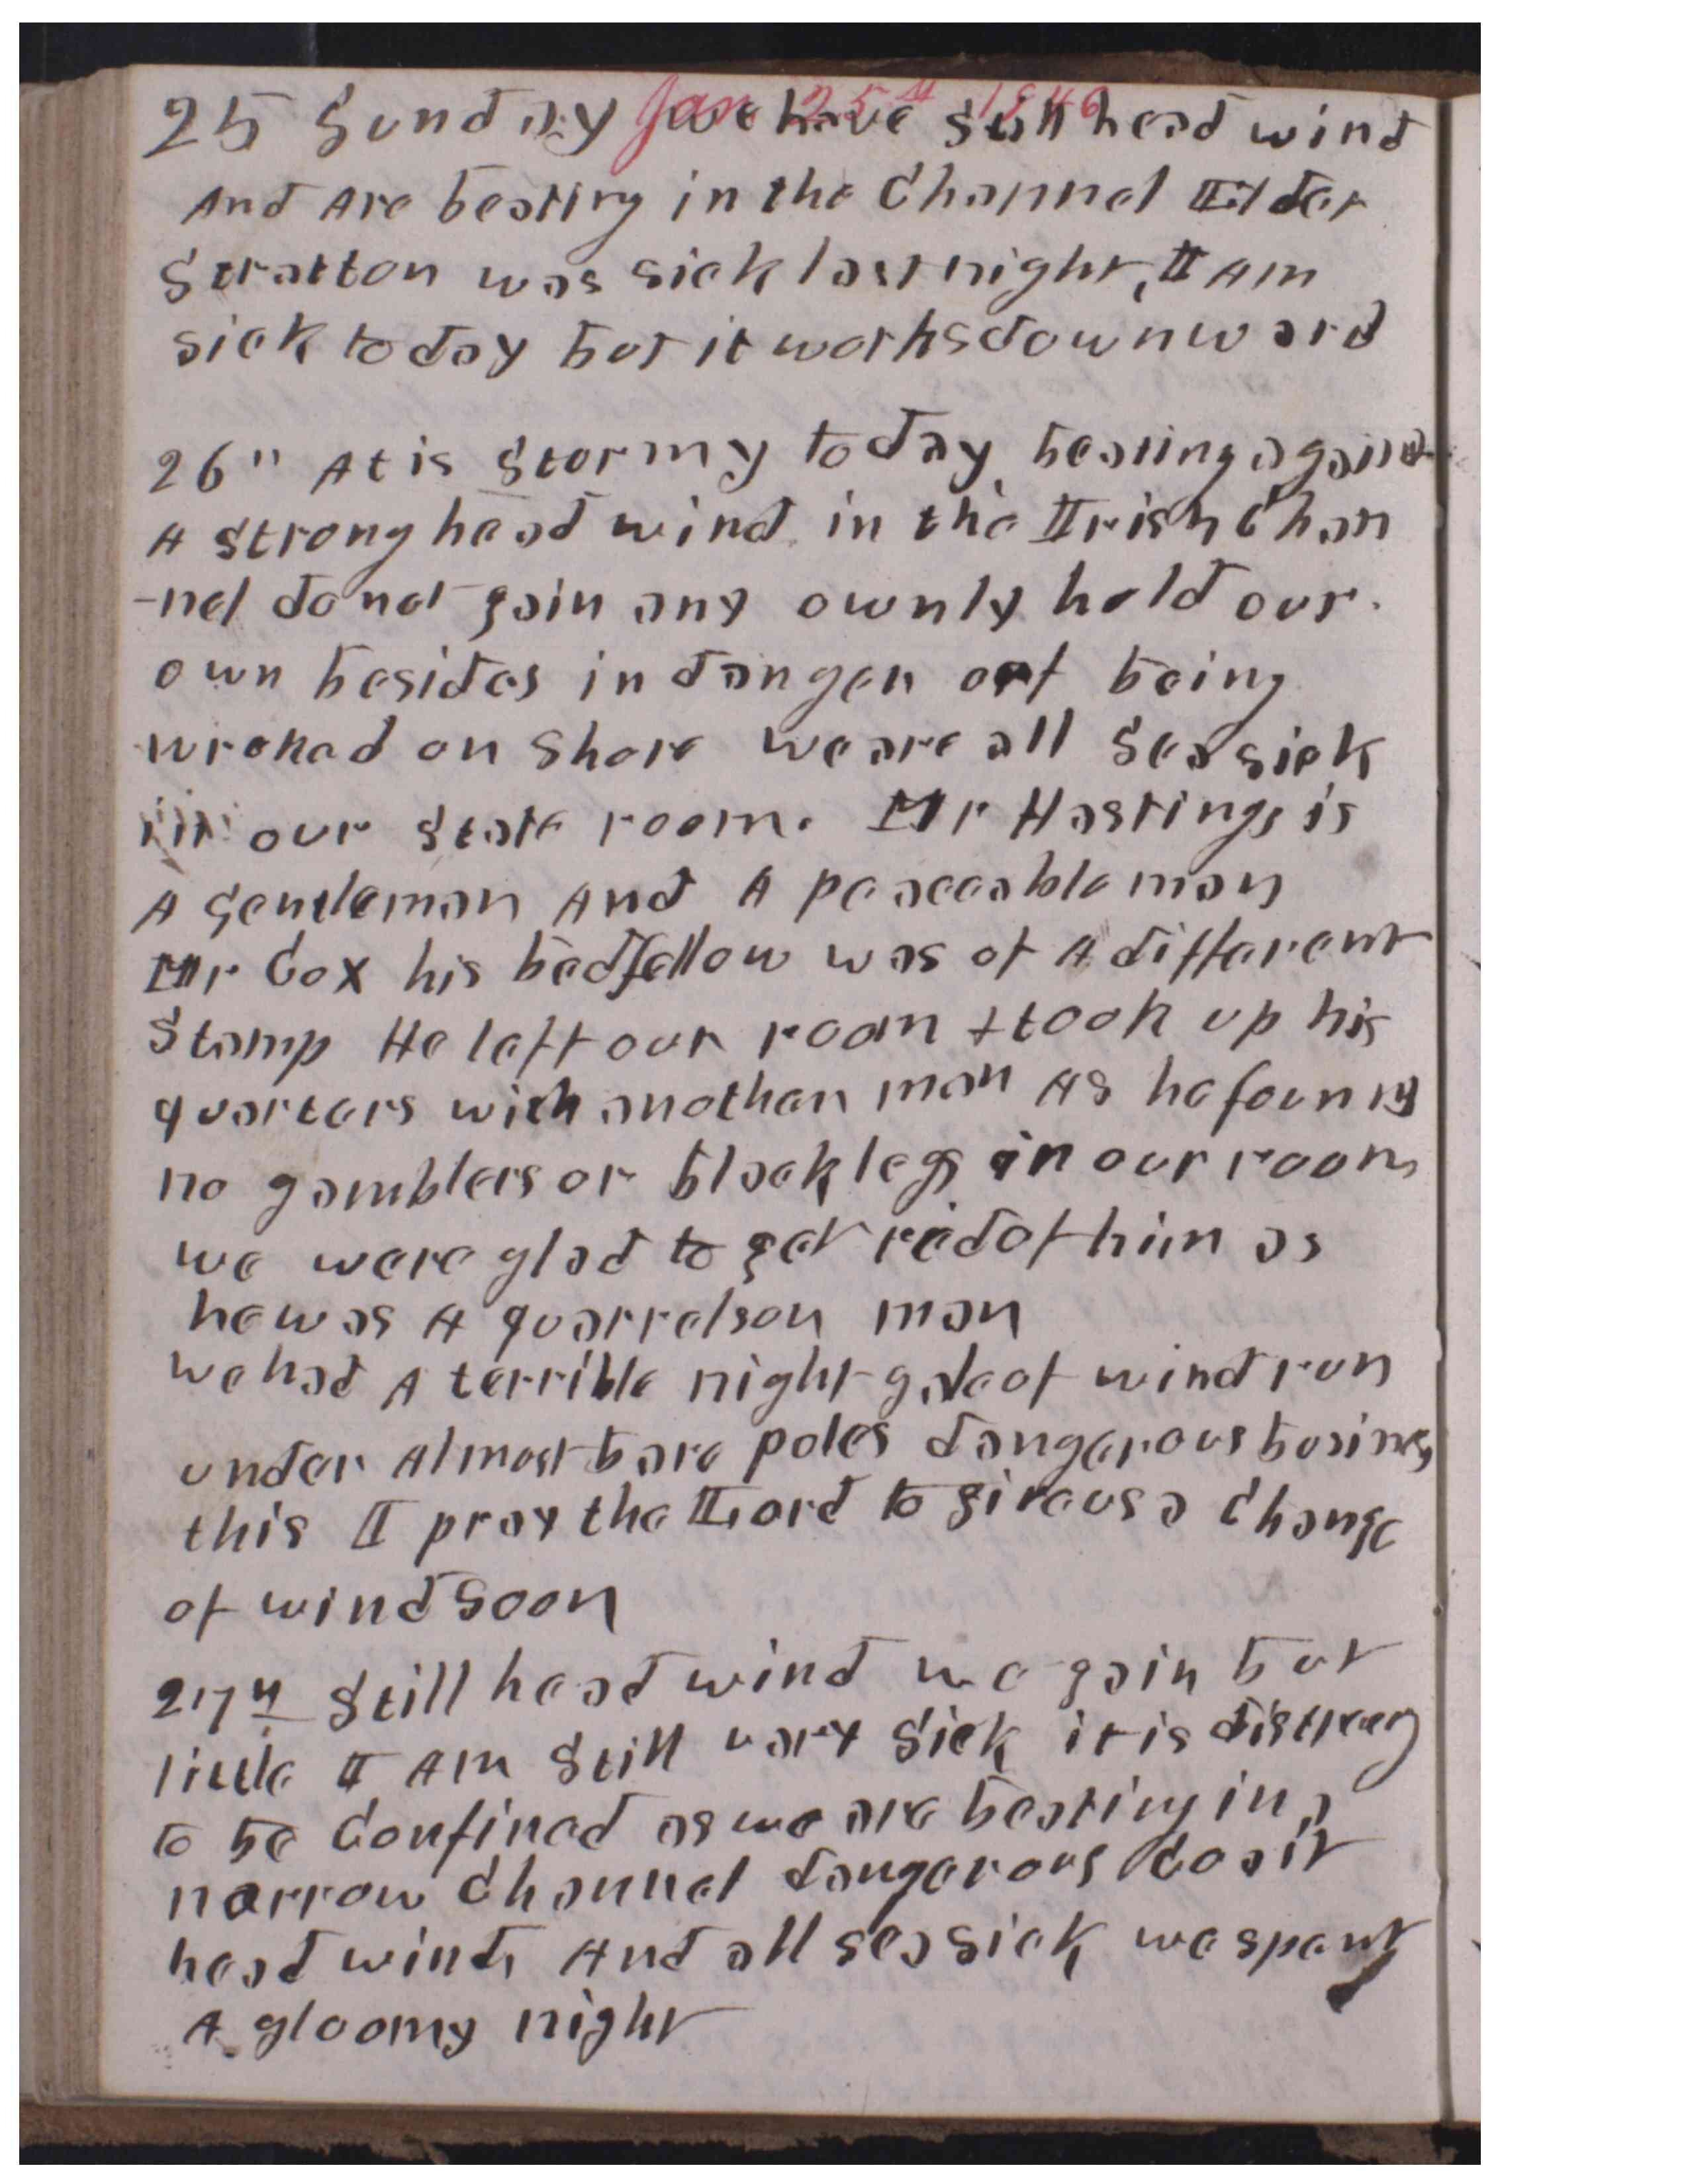 25 Sunday Jan 25th 1846 we have still head wind
And Are beating in the Channel Elder
Stratton was sick last night, I Am
sick to day but it works downward
26" At is Stormy to day beating against
A Strong head wind in the Irish Chan
-nel do not gain any ownly hold our
own besides in dangen of being
wreked on Shore we are all Sea sick
in our State room. Mr Hastings is
A Gentleman And A peaceable man
Mr Cox his bedfellow was of A different
Stamp He left our room + took up his
quarters with anothen man As he found
no gamblers or black legs in our room
we were glad to get rid of him as
he was A quarrelson man
we had A terrible night gale of wind run
under Almost bare poles dangerous busines
this I pray the Lord to give us a Change
of wind Soon
27th Still head wind we gain but
little I Am Still very Sick it is distresing
to be Confined as we are beating in a
narrow Channel dangerous Coast
head wind, And all sea sick we spent
A gloomy night